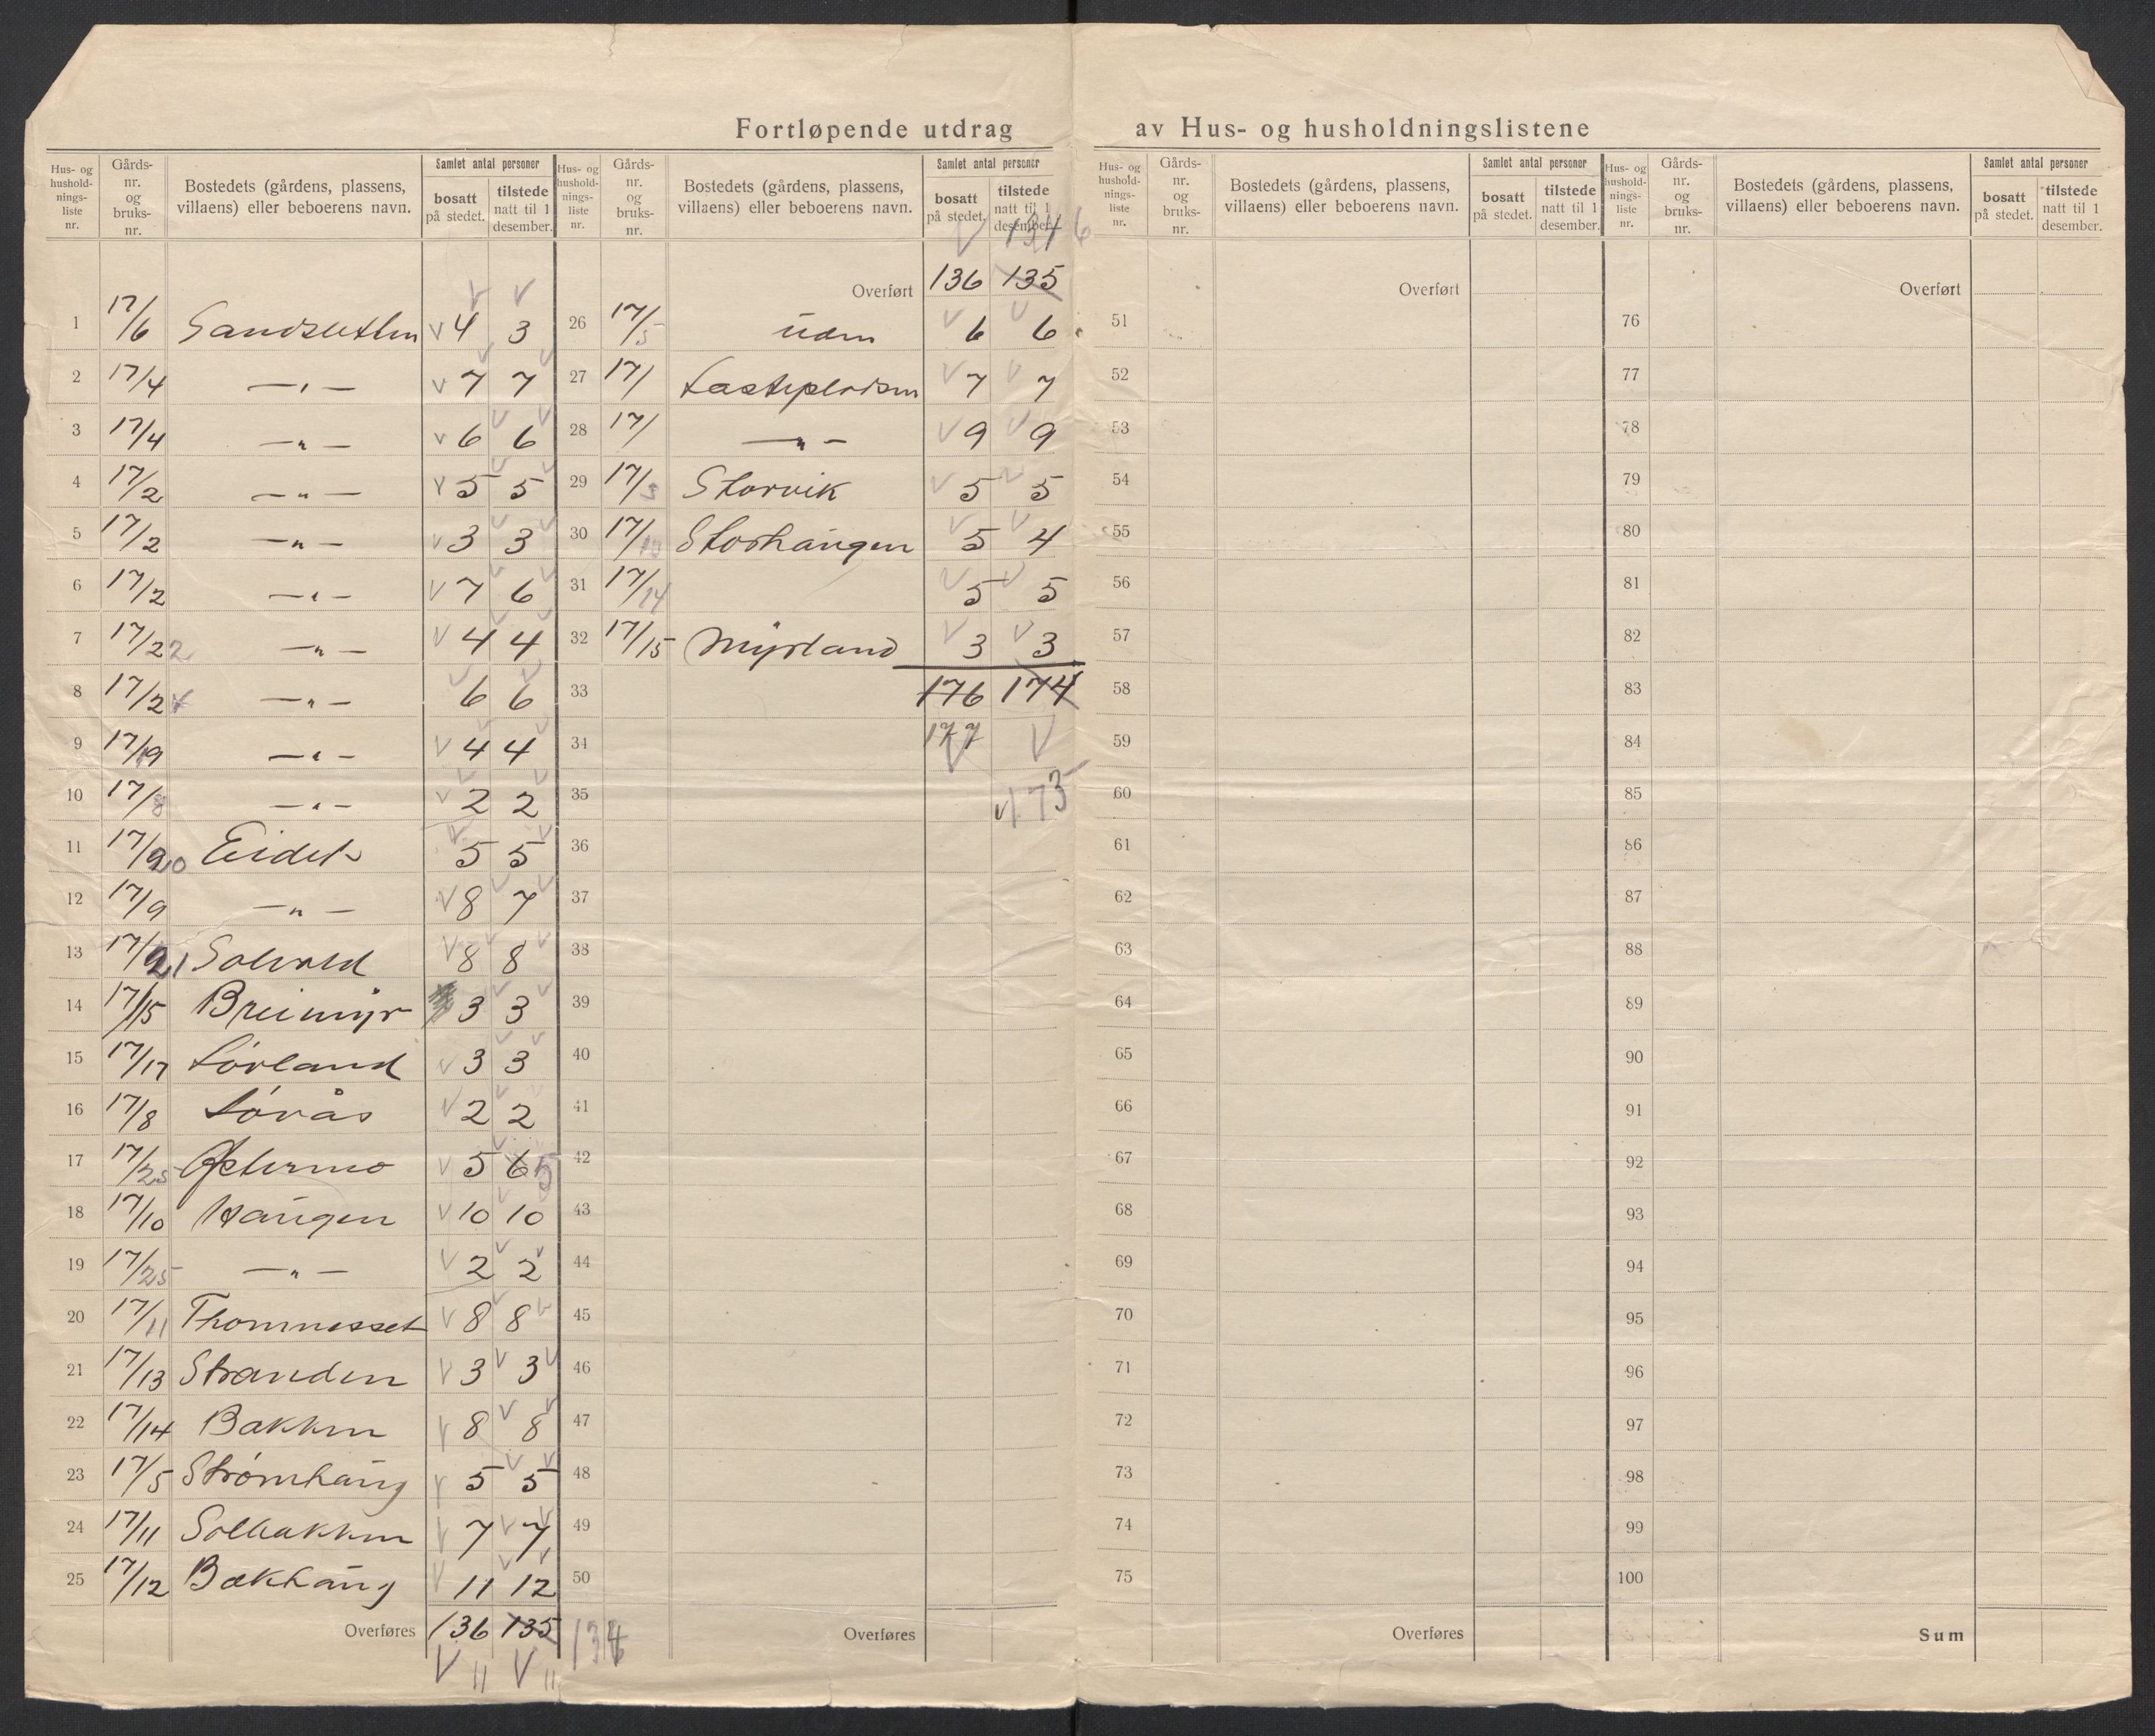 Fortløpende utdrag av Hus- og husholdningslistene
Hus- og husholdnings-liste nr. Gårds-nr. og bruks-nr. Bostedets (gårdens, plassens, villaens) eller beboerens navn. Samlet antal personer bosatt på stedet. tilstede natt til 1 desember.
1 17/6 4 3
2 17/4 — " — 7 7
3 17/4 — " — 6 6
4 17/2 — " — 5 5
5 17/2 — " — 3 3
6 17/2 — " — 7 6
7 17/22 — " — 4 4
8 17/2 — " — 6 6
9 17/19 — " — 4 4
10 17/8 — " — 2 2
11 17/20 Eidet 5 5
12 17/9 — " — 8 7
13 17/21 Solvold 8 8
14 17/15 Breimyr 3 3
15 17/17 Sørland 3 3
16 17/8 Sørås 2 2
17 17/25 5 6 5
18 17/10 Haugen 10 10
19 17/25 — " — 2 2
20 17/11 Thomnesset 8 8
21 17/13 Stranden 3 3
22 17/14 Bakken 8 8
23 17/5 Strømhaug 5 5
24 17/11 Solbakken 7 7
25 17/12 Bakhaug 11 12
Overføres 136 135 134
Hus- og husholdnings-liste nr. Gårds-nr. og bruks-nr. Bostedets (gårdens, plassens, villaens) eller beboerens navn. Samlet antal personer bosatt på stedet. tilstede natt til 1 desember.
134
Overført 136 135
26 17/5 6 6
27 17/ 7 7
28 17/ — " — 9 9
29 17/3 Storvik 5 5
30 17/13 Storhaugen 5 4
31 17/14 5 5
32 17/15 Myrland 3 3
33 176 174
34 177
35 173
36
37
38
39
40
41
42
43
44
45
46
47
48
49
50
Overføres
Hus- og husholdnings-liste nr. Gårds-nr. og bruks-nr. Bostedets (gårdens, plassens, villaens) eller beboerens navn. Samlet antal personer bosatt på stedet. tilstede natt til 1 desember.
Overført
51
52
53
54
55
56
57
58
59
60
61
62
63
64
65
66
67
68
69
70
71
72
73
74
75
Overføres
Hus- og husholdnings-liste nr. Gårds-nr. og bruks-nr. Bostedets (gårdens, plassens, villaens) eller beboerens navn. Samlet antal personer bosatt på stedet. tilstede natt til 1 desember.
Overført
76
77
78
79
80
81
82
83
84
85
86
87
88
89
90
91
92
93
94
95
96
97
98
99
100
Sum